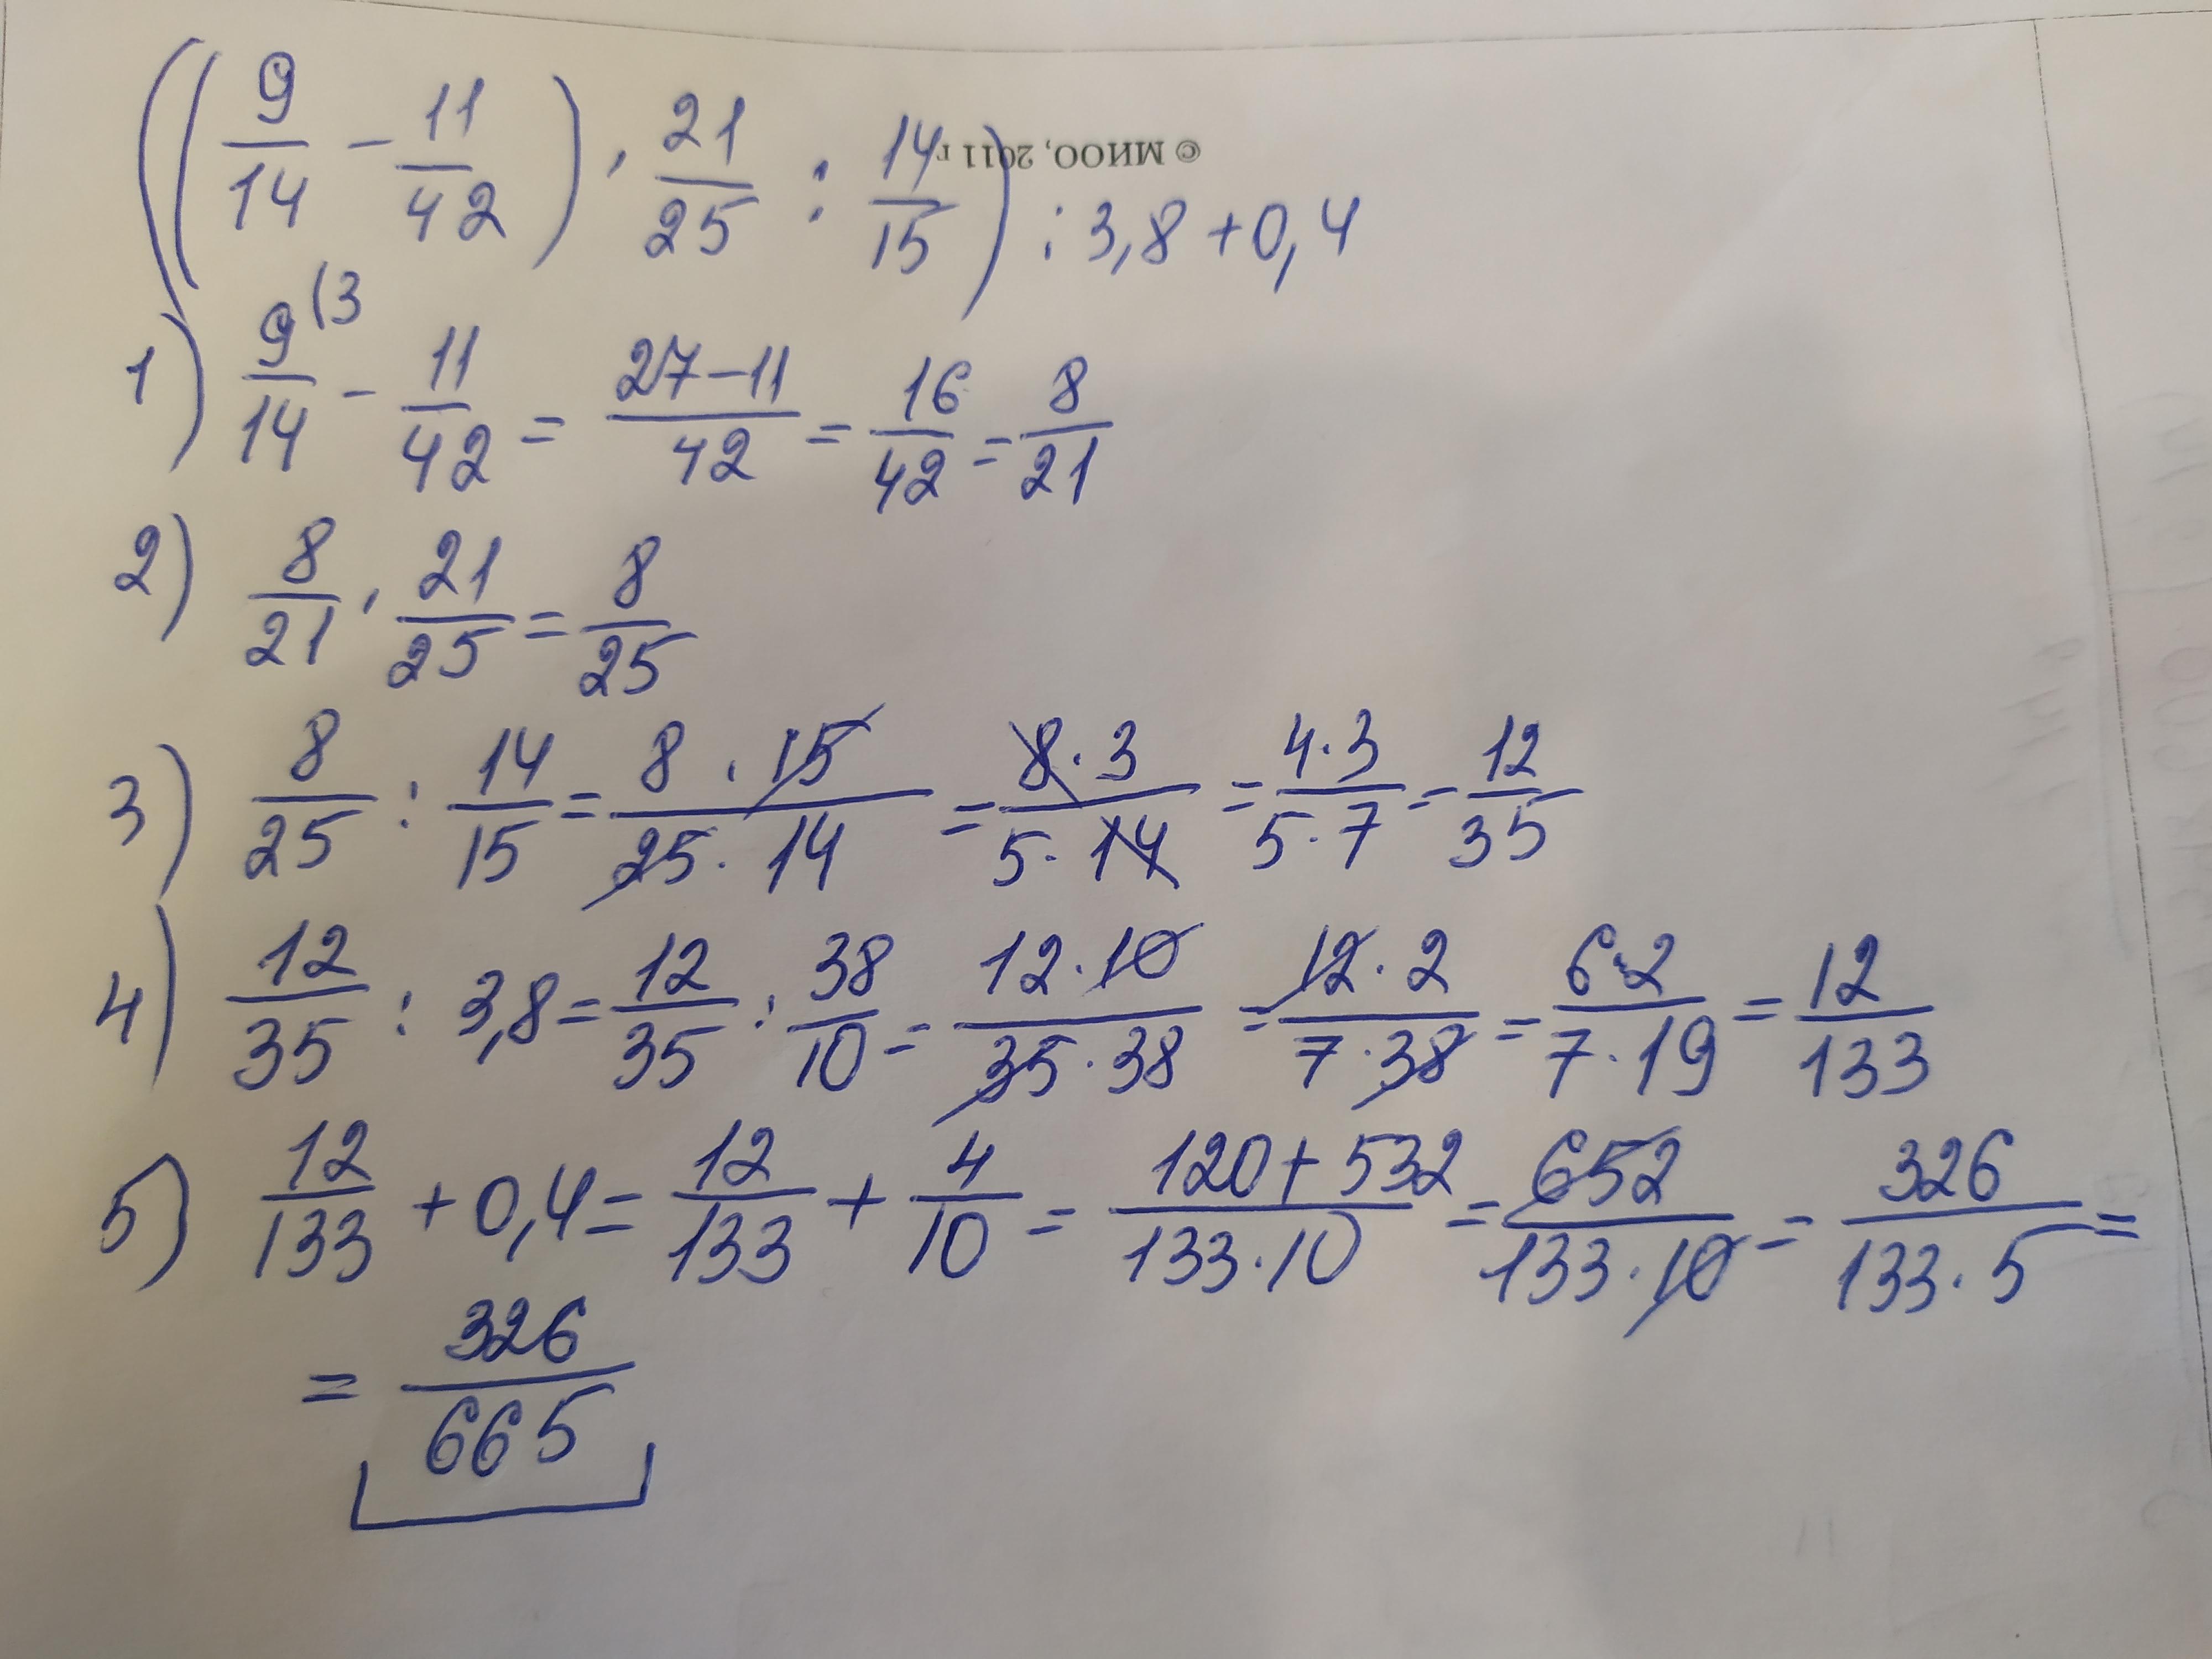 ((9/14 - 11/42) · 21/25 : 14/15) : 3,8 + 0,4
© МИОО, 2011 г
1) 9(3/14 - 11/42 = 27-11/42 = 16/42 = 8/21
2) 8/21 · 21/25 = 8/25
3) 8/25 : 14/15 = 8 · 15/25 · 14 = 8 · 3/5 · 14 = 4 · 3/5 · 7 = 12/35
4) 12/35 : 3,8 = 12/35 : 38/10 = 12 · 10/35 · 38 = 12 · 2/7 · 38 = 6 · 2/7 · 19 = 12/133
5) 12/133 + 0,4 = 12/133 + 4/10 = 120 + 532/133 · 10 = 652/133 · 10 = 326/133 · 5 =
= 326/665